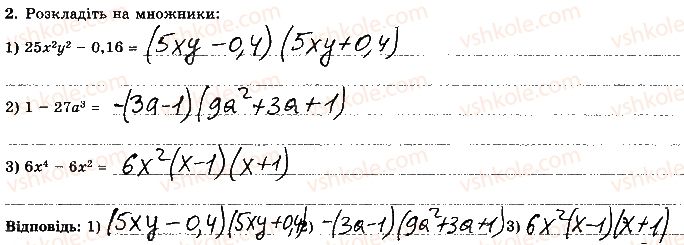 2. Розкладіть на множники:
1) 25x²y² − 0,16 = (5xy − 0,4) (5xy + 0,4)
2) 1 − 27a³ = −(3a−1) (9a² + 3a + 1)
3) 6x⁴ − 6x² = 6x²(x−1)(x+1)
Відповідь: 1) (5xy − 0,4)(5xy + 0,4) 2) −(3a−1)(9a²+3a+1) 3) 6x²(x−1)(x+1)
vshkole.com